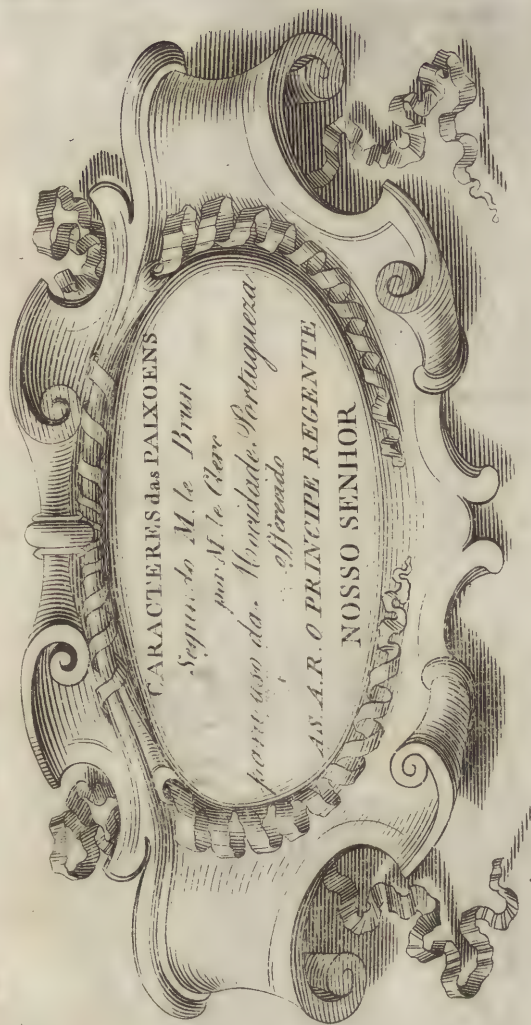 CARACTERES das PAIXOENS
Segundo M. le Brun
por M. le Clerc
para uso da Mocidade Portugueza
offerecido
A S. A. R. O PRINCIPE REGENTE
NOSSO SENHOR